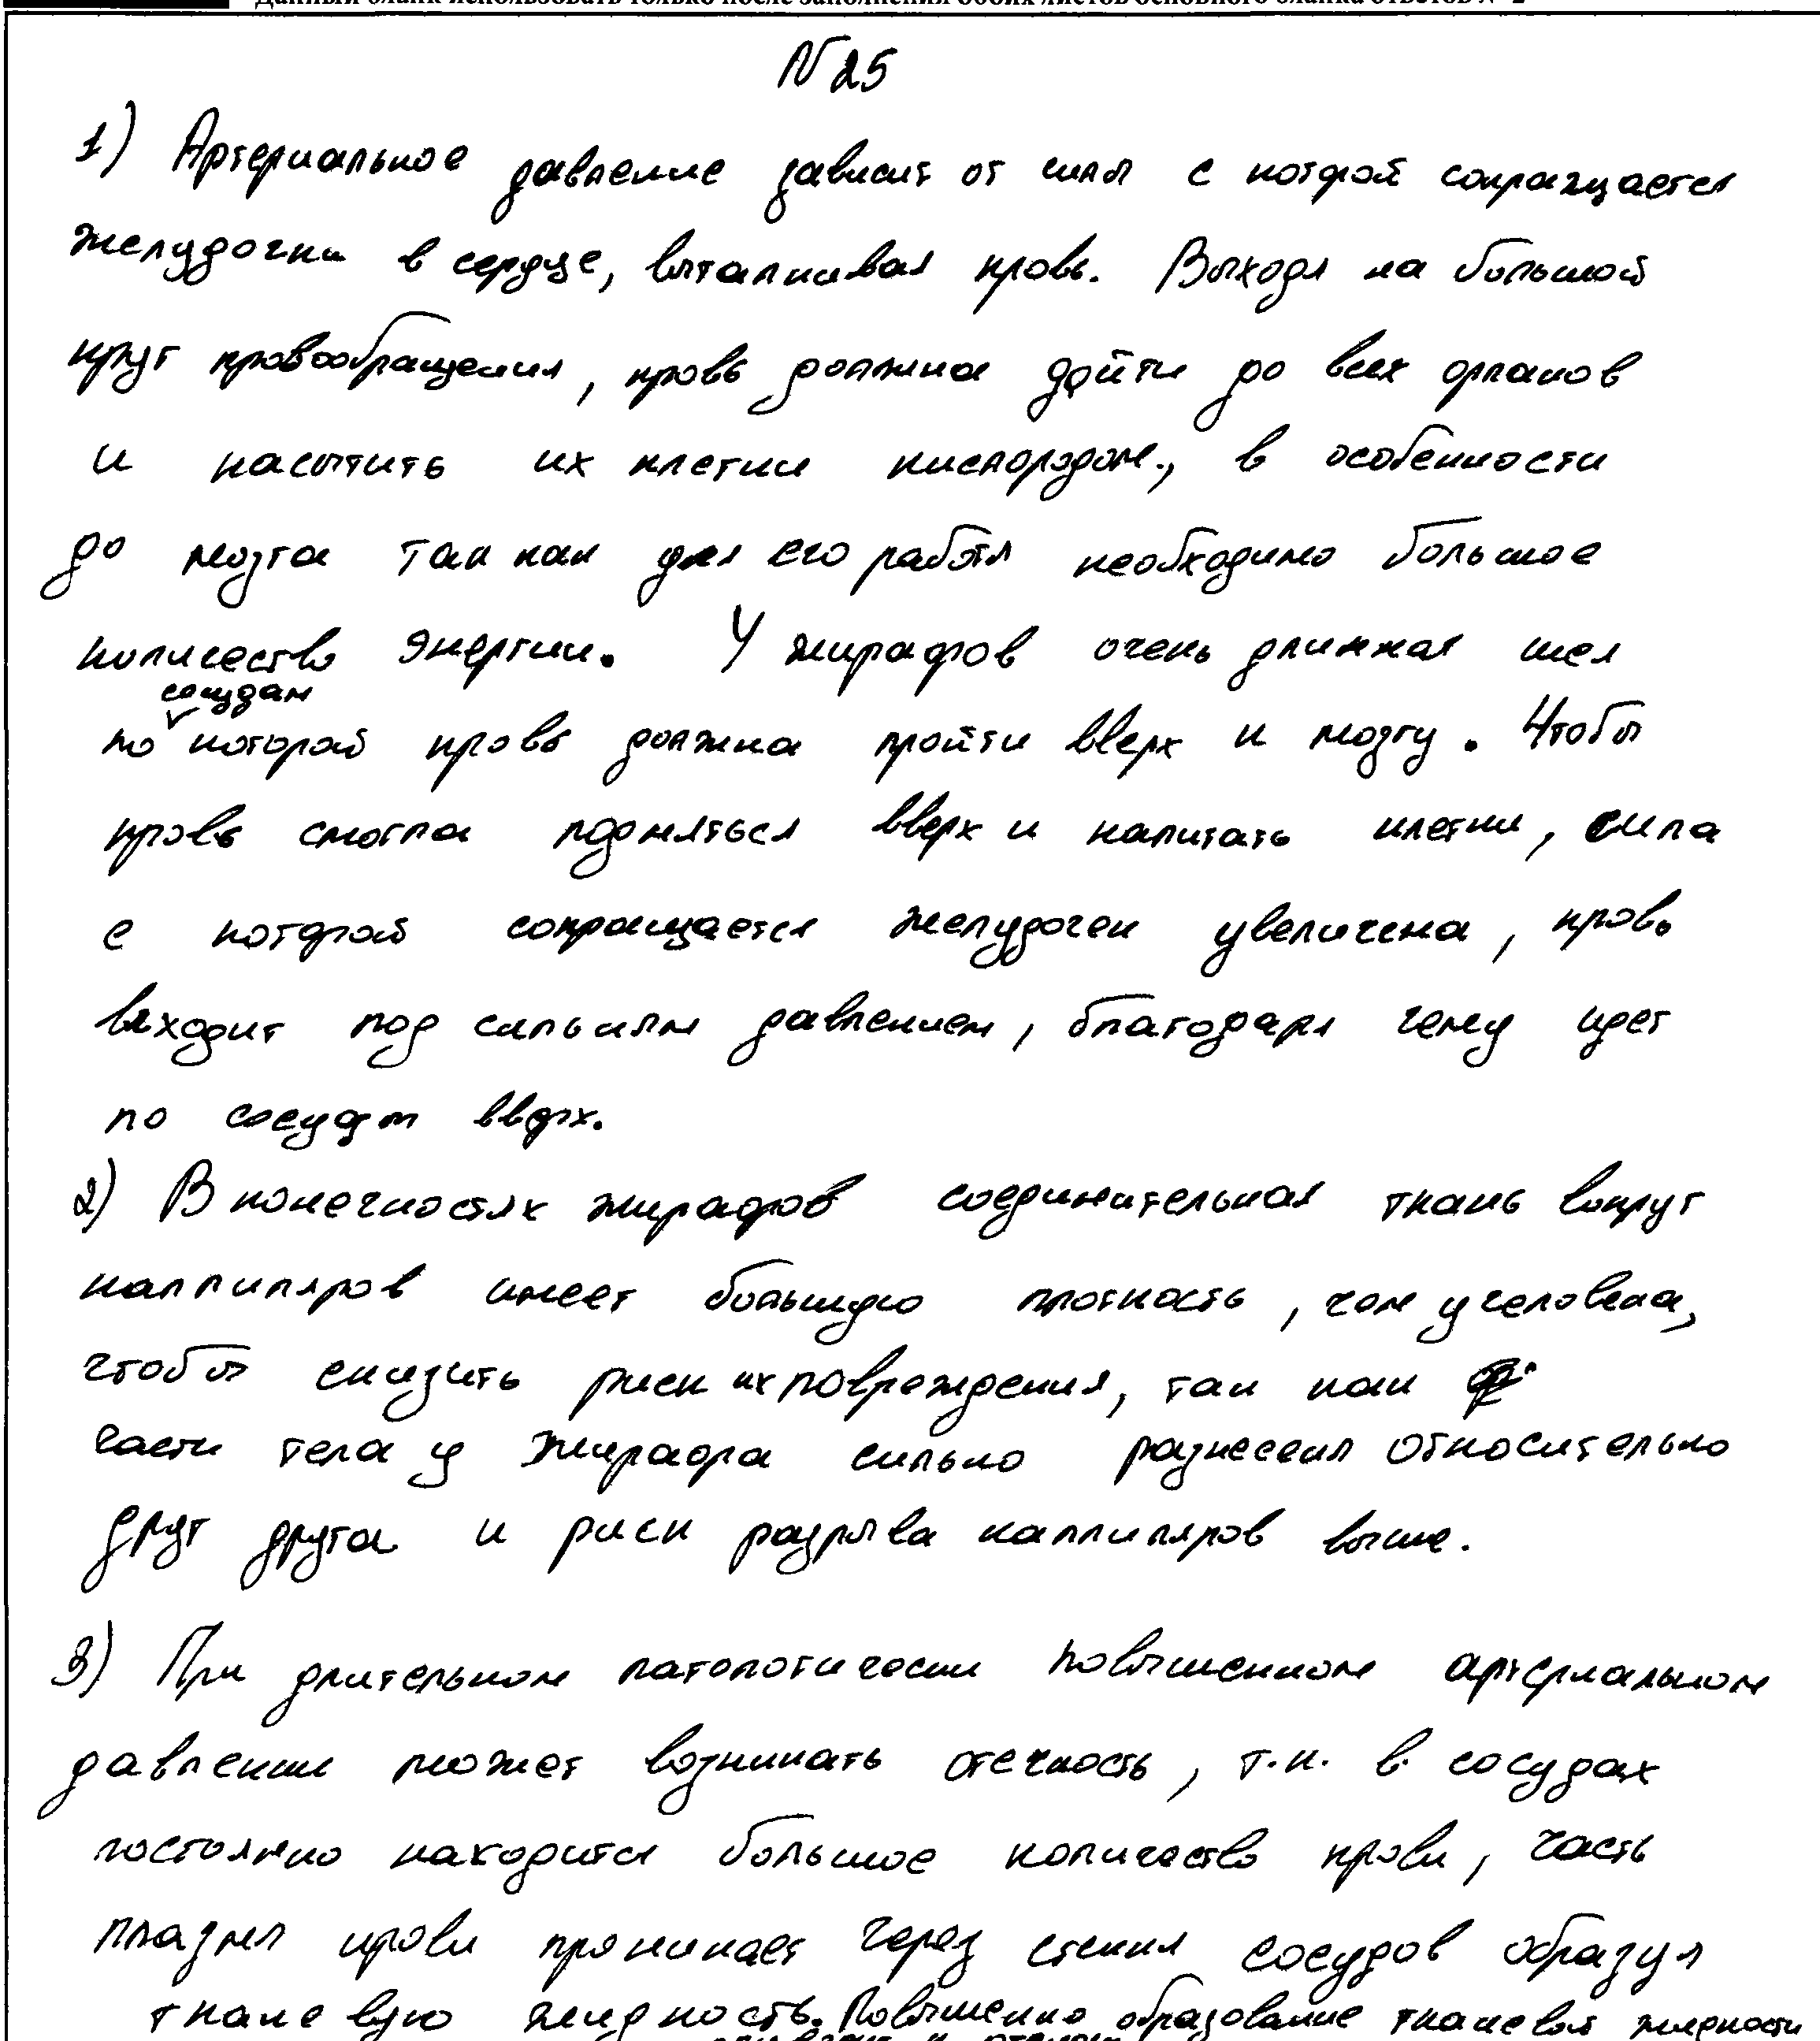 Данный бланк использовать только после заполнения обоих листов основного бланка ответов № 2
N 25
1) Артериальное давление зависит от силы с которой сокращается
желудочки в сердце, выталкивая кровь. Выходя на большой
круг кровообращения, кровь должна дойти до всех органов
и насытить их клетки кислородом, в особенности
до мозга так как для его работы необходимо большое
количество энергии. У жирафов очень длинная шея
сосудам
по которой кровь должна пройти вверх к мозгу. Чтобы
кровь смогла подняться вверх и напитать клетки, сила
с которой сокращается желудочек увеличена, кровь
выходит под сильным давлением, благодаря чему идет
по сосудам вверх.
2) В конечностях жирафов соединительная ткань вокруг
каппиляров имеет большую плотность, чем у человека,
чтобы снизить риск их повреждения, так как
части тела у жирафа сильно разнесены относительно
друг друга и риск разрыва каппиляров выше.
3) При длительном патологически повышенном артериальном
давлении может возникать отечность, т.к. в сосудах
постоянно находится большое количество крови, часть
плазмы крови проникает через стенки сосудов образуя
тканевую жидкость. Повышенно образование тканевой жидкости